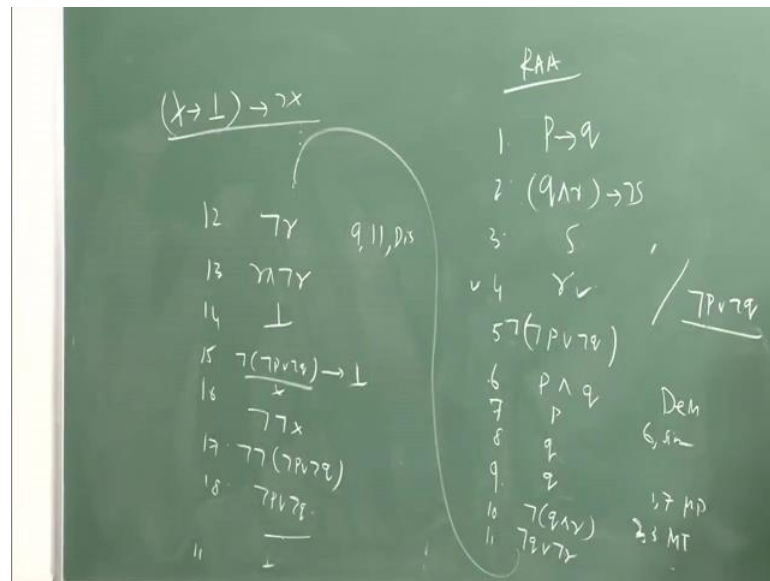 (x→⊥)→¬x
12 ¬r 9,11, Dis
13 r∧¬r
14 ⊥
15 ¬(¬p∨¬q)→⊥
16 x
¬¬x
17. ¬¬(¬p∨¬q)
18. ¬p∨¬q.
11 ⊥
RAA
1. p→q
2. (q∧r)→¬s
3. s
✓ 4 r✓ / ¬p∨¬q
5 ¬(¬p∨¬q)
6 p∧q Dem
7 p 6, sim
8 q
9. q 1,7 MP
10 ¬(q∧r) 2,3 MT
11 ¬q∨¬r